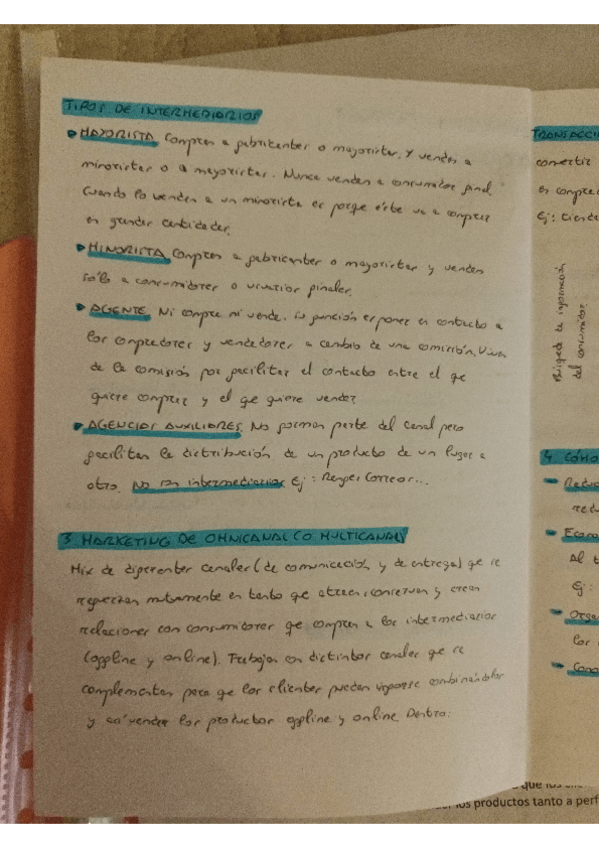 TIPOS DE INTERMEDIARIOS
MAYORISTA. Compran a fabricantes o mayoristas. Y venden a
minoristas o a mayoristas. Nunca venden a consumidor final.
Cuando lo venden a un minorista es porque éste va a comprar
en grandes cantidades.
MINORISTA Compran a fabricantes o mayoristas y venden
sólo a consumidores o usuarios finales.
AGENTE. Ni compra ni vende. Su función es poner en contacto a
los compradores y vendedores a cambio de una comisión. Viven
de la comisión por facilitar el contacto entre el qe
quiere comprar y el qe quiere vender
AGENCIAS AUXILIARES. No forman parte del canal pero
facilitan la distribución de un producto de un lugar a
otro. No son intermediarios Ej: Renfe, Correos...
3. MARKETING DE OMNICANAL (O MULTICANAL)
Mix de diferentes canales (de comunicación y de entrega) qe se
refuerzan mutuamente en tanto qe atraen, conservan y crean
relaciones con consumidores qe compran a los intermediarios
(offline y online). Trabajan en distintos canales qe se
complementan para qe los clientes puedan combinándolos
y así vender los productos offline y online Dentro:
TRANSACCI
convertir
en compra
Ej: tienda
Búsqueda de información
del consumidor
4. CÓMO
Reduc
redu
Econo
Al t
Ej:
Orga
los
Cono
que los
los productos tanto a perf